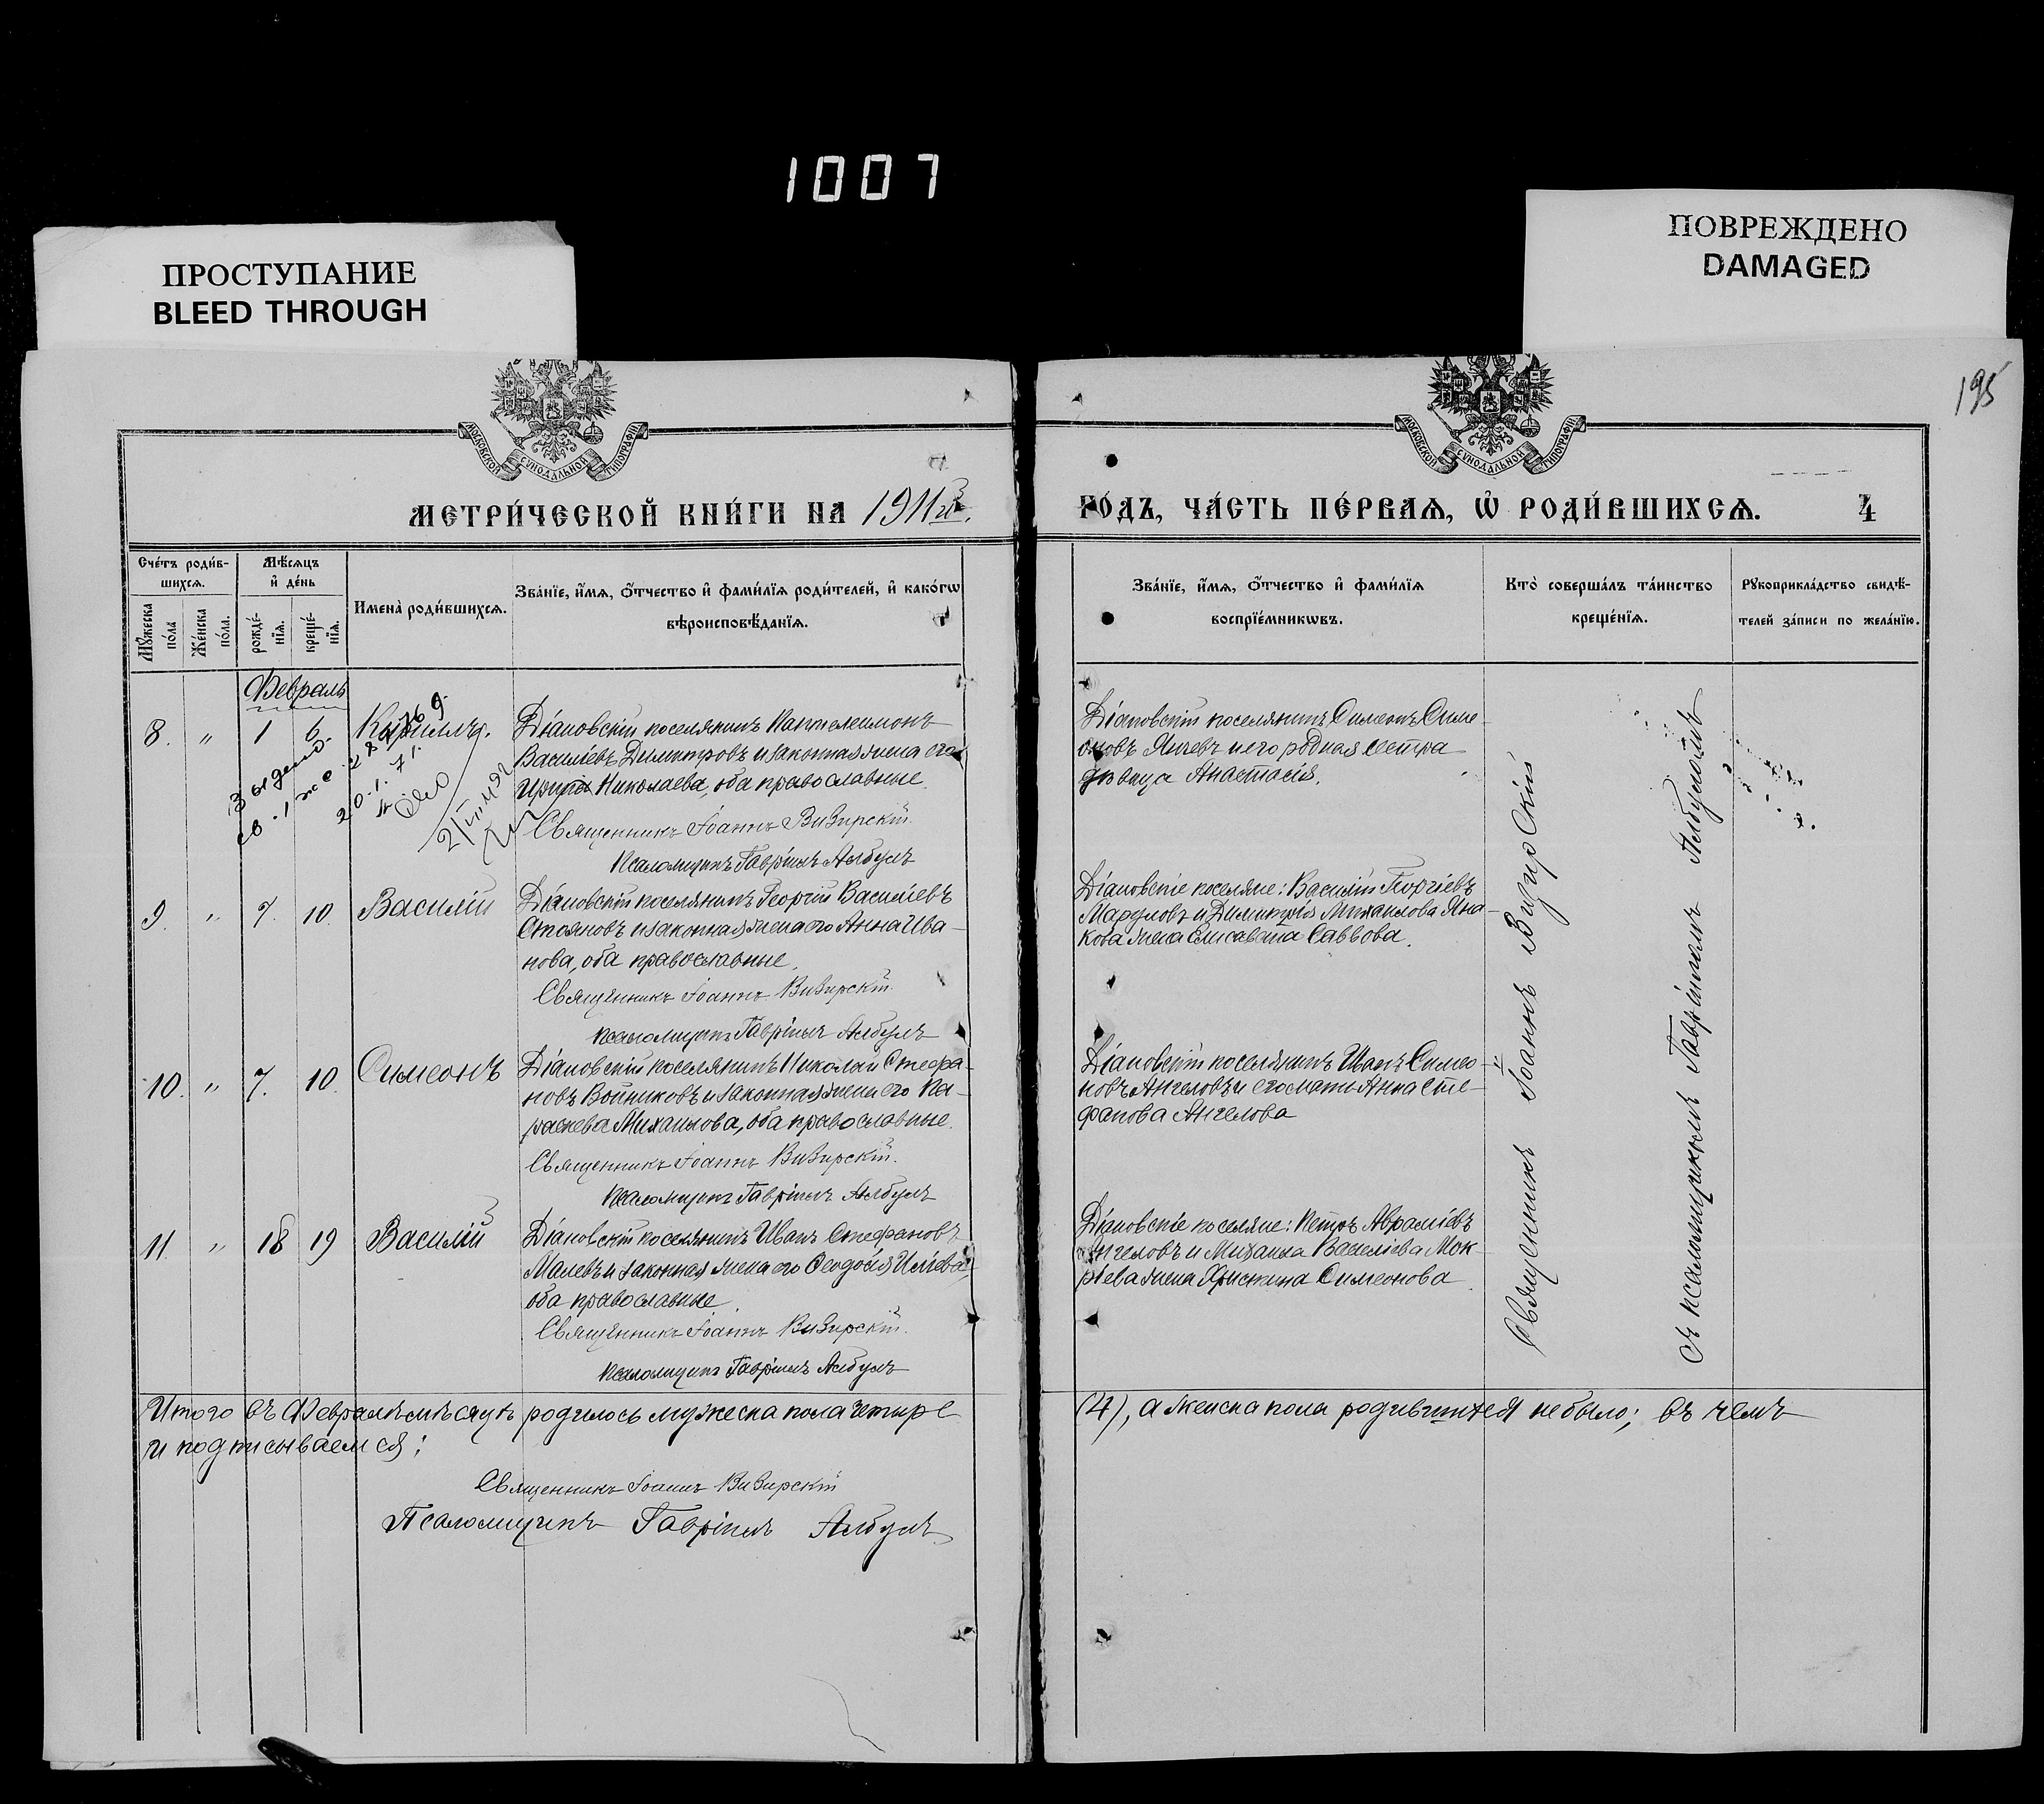 1007
ПРОСТУПАНИЕ
BLEED THROUGH
ПОВРЕЖДЕНО
DAMAGED
195
МОСКОВСКОЙ СУНОДАЛЬНОЙ ТИПОГРАФІИ
МОСКОВСКОЙ СУНОДАЛЬНОЙ ТИПОГРАФІИ
МЕТРИ́ЧЕСКОЙ КНИ́ГИ НА 1911й
ГО́ДЪ, ЧА́СТЬ ПЕ́РВАѦ, Ѡ҆ РОДИ́ВШИХСѦ. 4
Сче́тъ роди́в-
шихсѧ.
Мꙋ́жеска по́ла
Же́нска по́ла.
Мѣ́сѧцъ
и҆ де́нь
рожде́-
нїѧ.
креще́-
нїѧ.
И҆мена̀ роди́вшихсѧ.
Зва́нїе, и҆́мѧ, ѻ҆́тчество и҆ фами́лїѧ роди́телей, и҆ како́гѡ
вѣроисповѣ́данїѧ.
Зва́нїе, и҆́мѧ, ѻ҆́тчество и҆ фами́лїѧ
воспрїе́мникѡвъ.
Кто̀ соверша́лъ та́инство
креще́нїѧ.
Рꙋкоприкла́дство свидѣ́-
телей за́писи по жела́нїю.
Февраль
8. " 1 6 Кириллъ.
Діановскій поселянинъ Пантелеимонъ
Василіевъ Димитровъ и законная жена его
Ирина Николаева, оба православные.
Священникъ Іоаннъ Визирскій.
Псаломщикъ Гавріилъ Албулъ
Діановскій поселянинъ Симеонъ Симе-
оновъ Янчевъ и его родная сестра
девица Анастасія.
9. " 7. 10. Василій
Діановскій поселянинъ Георгій Василіевъ
Стояновъ и законная жена его Анна Ива-
нова, оба православные.
Священникъ Іоаннъ Визирскій.
Псаломщикъ Гавріилъ Албулъ
Діановскіе поселяне: Василій Георгіевъ
Марулов и Димитрія Михаилова Яна-
кова жена Елисавета Саввова.
10. " 7. 10. Симеонъ
Діановскій поселянинъ Николай Стефа-
новъ Войниковъ и законная жена его Па-
раскева Михаилова, оба православные.
Священникъ Іоаннъ Визирскій.
Псаломщикъ Гавріилъ Албулъ
Діановскій поселянинъ Иванъ Симео-
новъ Ангеловъ и его мать Анна Сте-
фанова Ангелова
11. " 18 19 Василій
Діановскій поселянинъ Иванъ Стефановъ
Малевъ и законная жена его Феодосія Иліева,
оба православные.
Священникъ Іоаннъ Визирскій.
Псаломщикъ Гавріилъ Албулъ
Діановскіе поселяне: Петръ Авраміевъ
Ангеловъ и Михаила Василіева Мок-
ріева жена Христина Симеонова.
Священникъ Іоаннъ Визирскій
съ псаломщикомъ Гавріиломъ Албуломъ
Итого въ Февралѣ мѣсяцѣ родилось мужеска пола четыре
(4), а женска пола родившихся не было; въ чемъ
и подписываемся:
Священникъ Іоаннъ Визирскій
Псаломщикъ Гавріилъ Албулъ